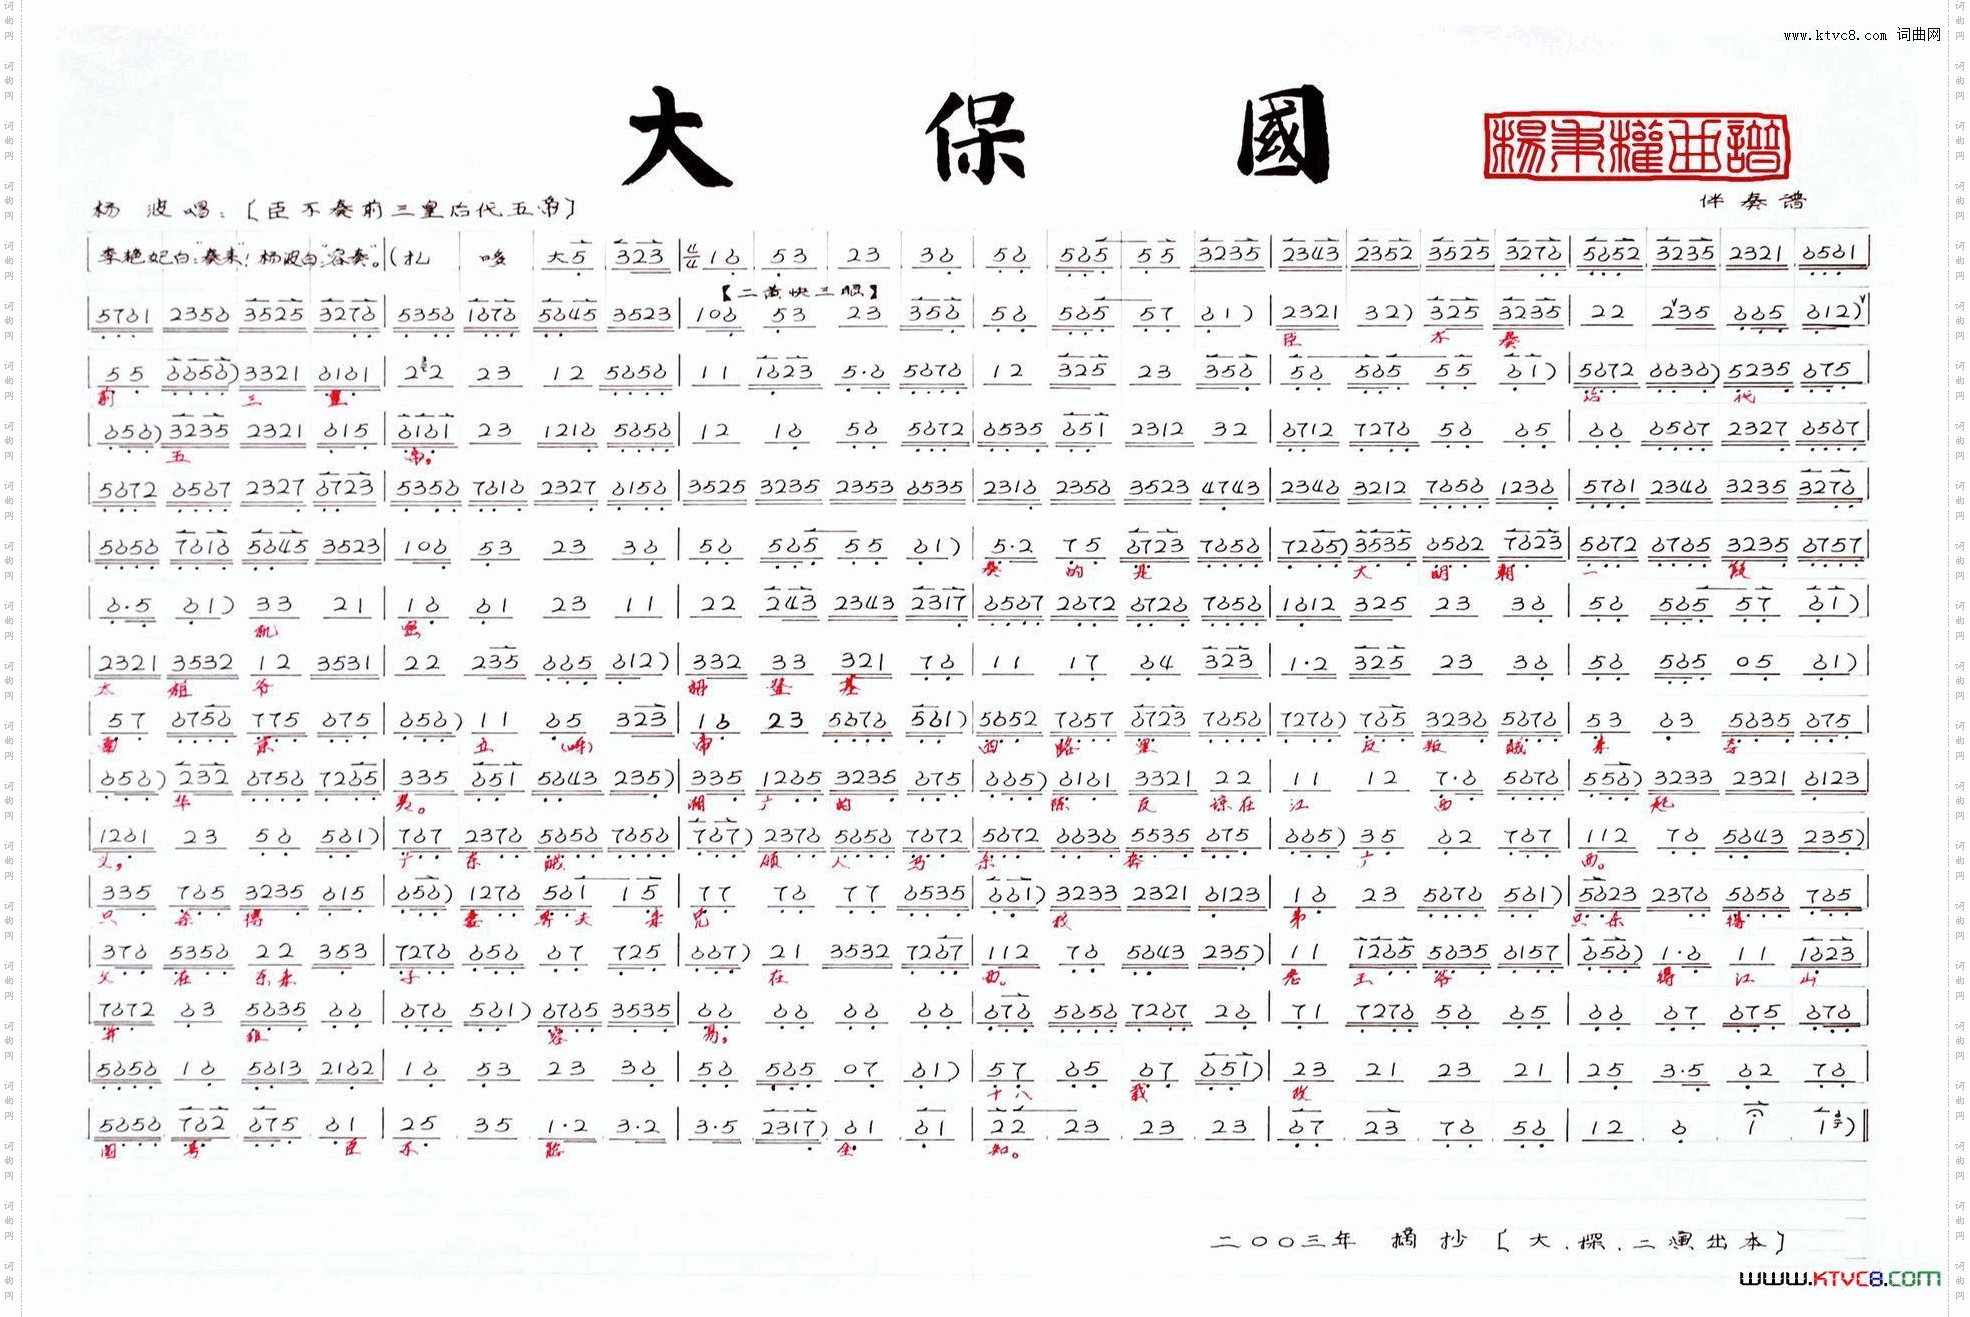 www.ktvc8.com 词曲网
大保國
杨秉權曲譜
伴奏谱
杨波唱：〔臣不奏前三皇后代五帝〕
李艳妃白："奏来"！杨波白："容奏"。(扎 哆 大5 323 4/4 16 53 23 36 56 565 55 3235 2343 2352 3525 3276 5652 3235 2321 6561
【二黄快三眼】
5761 2356 3525 3276 5356 1676 5645 3523 106 53 23 356 56 565 57 61) 2321 32) 325 3235 22 235 665 612)
臣 不 奏
55 6656) 3321 6161 2 2 23 12 5656 11 1623 5·6 5676 12 325 23 356 56 565 55 61) 5672 6636) 5235 675
前 三 皇 后 代
656) 3235 2321 615 6161 23 1216 5656 12 16 56 5672 6535 651 2312 32 6712 7276 56 65 66 6567 2327 6567
五 帝，
5672 6567 2327 6723 5356 7616 2327 6156 3525 3235 2353 6535 2316 2356 3523 4743 2346 3212 7656 1236 5761 2346 3235 3276
5656 7616 5645 3523 106 53 23 36 56 565 55 61) 5·2 75 6723 7656 7265) 3535 6562 7623 5672 6765 3235 6757
奏 的 是 大 明 朝 一 段
6·5 61) 33 21 16 61 23 11 22 243 2343 2317 6567 2672 6726 7656 1612 325 23 36 56 565 57 61)
机 密
2321 3532 12 3531 22 235 665 612) 332 33 321 76 11 17 64 323 1·2 325 23 36 56 565 05 61)
太 祖 爷 登 基
57 6756 775 675 656) 11 65 323 16 23 5676 561) 5652 7657 6723 7656 7276) 765 3236 5676 53 63 5635 675
南 京 立 (呐) 帝 西 路 里 反 叛 贼 来 夺
656) 232 6756 7265 335 651 5643 235) 335 1265 3235 675 665) 6161 3321 22 11 12 7·6 5676 556) 3233 2321 6123
华 夷。 湖 广 的 陈 友 谅 在 江 西 起
1261 23 56 561) 767 2376 5656 7656 767) 2376 5656 7672 5672 6636 5535 675 665) 35 62 767 112 76 5643 235)
义， 广 东 贼 领 人 马 杀 奔 广 西。
335 765 3235 615 656) 1276 561 15 77 76 77 6535 661) 3233 2321 6123 16 23 5676 561) 5623 2376 5656 765
只 杀 得 妻 寻 夫 来 兄 找 弟 只 杀 得
376 5356 22 353 7276 656 67 725 667) 21 3532 7267 112 76 5643 235) 11 1265 5635 6157 656) 1·6 11 1623
父 在 东 来 子 在 西。 老 王 爷 得 江 山
7672 63 5635 66 676 561) 6765 3535 66 66 66 66 676 5656 7267 26 71 7276 56 65 66 67 675 676
并 非 容 易，
5656 16 5613 2162 16 53 23 36 56 565 07 61) 57 65 67 651) 23 21 23 21 25 3·5 62 76
十 八 载 改
5656 762 675 61 25 35 1·2 3·2 3·5 2317) 61 61 22 23 23 23 67 23 76 56 12 6 1 1)
国 号 臣 不 能 全 知。
二〇〇三年 摘抄〔大．探．二演出本〕
www.KTVC8.com